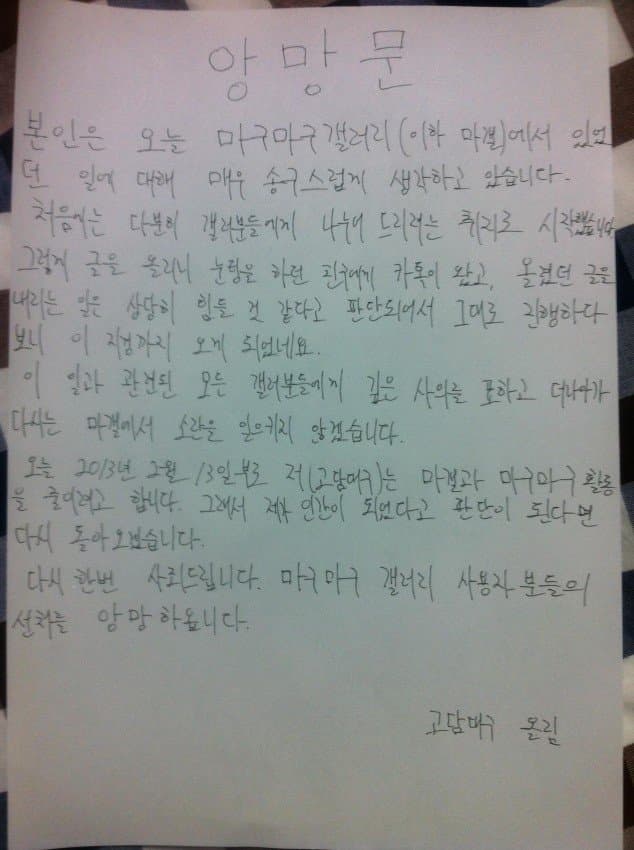 앙망문
본인은 오늘 마구마구갤러리(이하 마갤)에서 있었
던 일에 대해 매우 송구스럽게 생각하고 있습니다.
처음에는 다분히 갤러분들에게 나누어 드리려는 취지로 시작했습니다
그렇게 글을 올리니 눈팅을 하던 친구에게 카톡이 왔고, 올렸던 글을
내리는 일은 상당히 힘들 것 같다고 판단되어서 그대로 진행하다
보니 이 지경까지 오게 되었네요.
이 일과 관련된 모든 갤러분들에게 깊은 사의를 표하고 더나아가
다시는 마갤에서 소란을 일으키지 않겠습니다.
오늘 2013년 2월 13일부로 저(고담대구)는 마갤과 마구마구 활동
을 줄이려고 합니다. 그래서 제가 인간이 되었다고 판단이 된다면
다시 돌아오겠습니다.
다시 한번 사죄드립니다. 마구마구 갤러리 사용자 분들의
선처를 앙망하옵니다.
고담대구 올림